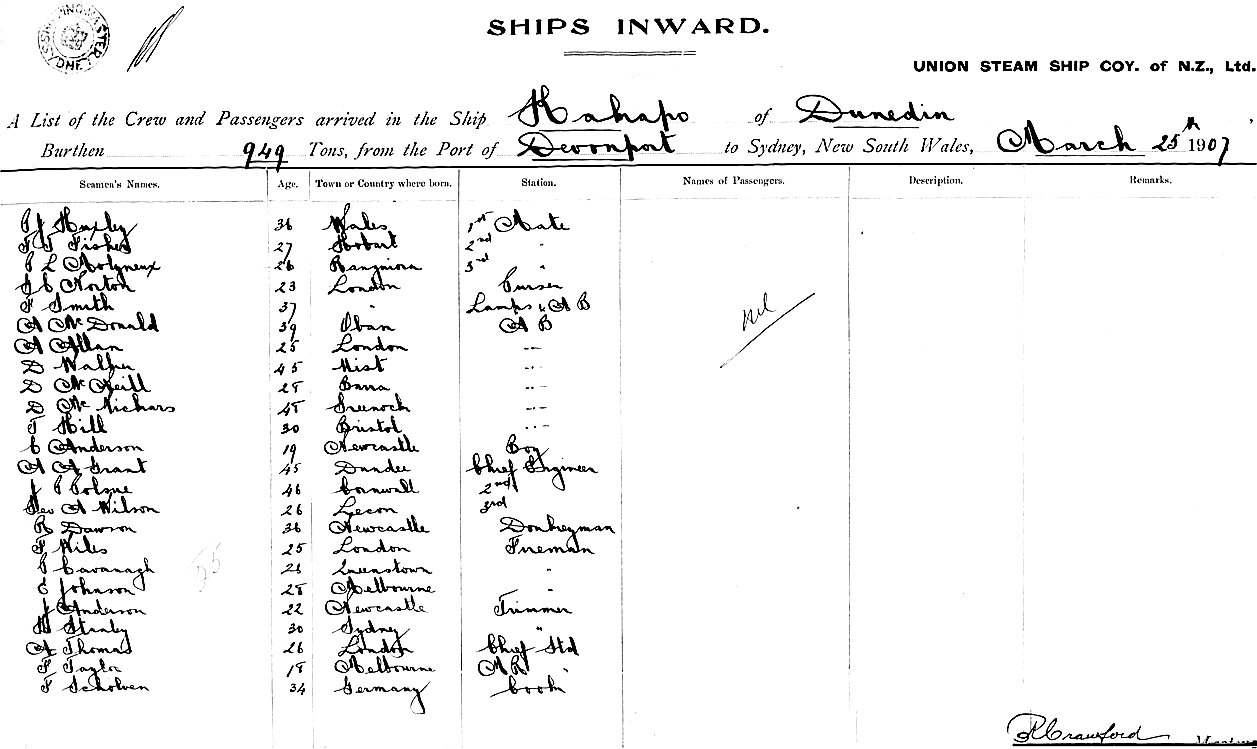 SHIPPING MASTER SYDNEY
SHIPS INWARD.
UNION STEAM SHIP COY. of N.Z., Ltd.
A List of the Crew and Passengers arrived in the Ship Kahapo of Dunedin
Burthen 949 Tons, from the Port of Devonport to Sydney, New South Wales, March 25th 1907
Seamen's Names. Age. Town or Country where born. Station. Names of Passengers. Description. Remarks.
Huxley 36 Wales 1st Mate
F J Fisher 27 Hobart 2nd "
P L Molyneux 26 Rangiora 3rd "
Norton 23 London Purser
F Smith 37 " Lamps & A B
nil
A McDonald 39 Oban A B
A Allan 25 London "
D Walker 45 "
D McNeill 28 Barra "
D 48 Greenock "
T Hill 30 Bristol "
C Anderson 19 Newcastle Boy
A A Grant 45 Dundee Chief Engineer
J P 46 Cornwall 2nd
Geo A Wilson 26 3rd
R Dawson 36 Newcastle Donkeyman
F Wiles 25 London Fireman
P Cavanagh 28 Queenstown "
E Johnson 28 Melbourne "
J Anderson 22 Newcastle Trimmer
H Stanley 30 Sydney "
A Thomas 26 London Chief Std
F Taylor 18 Melbourne "
F Scholven 34 Germany Cook
R Crawford